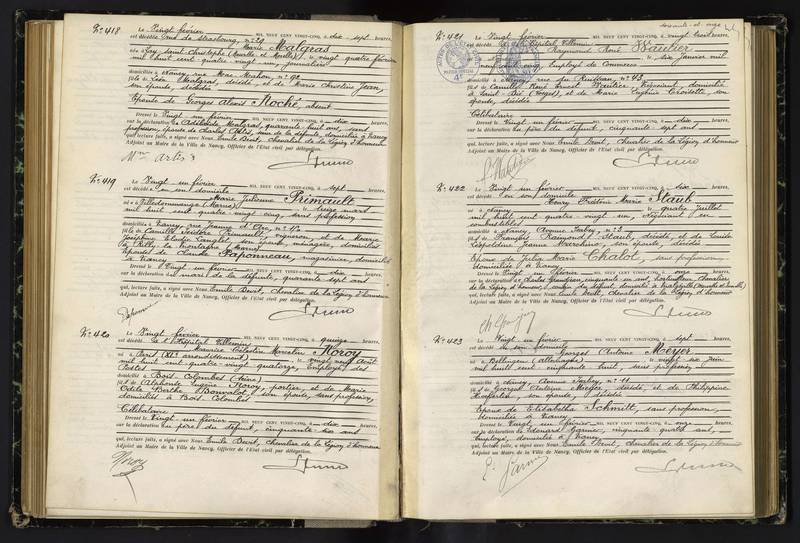 N° 418 Le Vingt février MIL NEUF CENT VINGT-CINQ, à dix sept heures,
est décédée rue de Strasbourg, n° 29
Marie Malgras
née à Gay Saint Christophe (Meurthe et Moselle), le vingt quatre février
mil huit cent quatre vingt un, journalière
domiciliée à Nancy, rue Mac-Mahon, n° 92
fille de Malgras, décédé, et de Marie Christine Jean,
son épouse, décédée
Epouse de Georges Alexis Roché, absent
Dressé le Vingt un février MIL NEUF CENT VINGT-CINQ, à dix heures,
sur la déclaration de Adélaïde Malgras, quarante huit ans, sans
profession, épouse de Charles Artis, sœur de la défunte, domiciliée à Nancy
qui, lecture faite, a signé avec Nous Emile Devit, Chevalier de la Légion d'honneur
Adjoint au Maire de la Ville de Nancy, Officier de l'Etat civil par délégation.
Mme Artis
N° 419 Le Vingt un février MIL NEUF CENT VINGT-CINQ, à sept heures,
est décédée en son domicile
Marie Julienne Primault
née à Villedommange (Marne), le treize mars
mil huit cent quatre vingt cinq, sans profession
domiciliée à Nancy, rue Jeanne d'Arc, n°
fille de Camille Victore Primault, vigneron, et de Marie
Joséphine Elodie Langlet, son épouse, ménagère, domiciliés
à Rilly la Montagne (Marne)
Epouse de Claude Japonneau, magasinier, domicilié
à Nancy
Dressé le Vingt un février MIL NEUF CENT VINGT-CINQ, à dix heures,
sur la déclaration du mari de la défunte, quarante sept ans
qui, lecture faite, a signé avec Nous Emile Devit, Chevalier de la Légion d'honneur
Adjoint au Maire de la Ville de Nancy, Officier de l'Etat civil par délégation.
N° 420 Le Vingt février MIL NEUF CENT VINGT-CINQ, à quinze heures,
est décédé à l'Hôpital Villemin
Maurice Célestin Marcelin Noroy
né à Paris (XIe arrondissement), le vingt neuf août
mil huit cent quatre-vingt quatorze, employé des
Postes
domicilié à Bois-Colombes (Seine)
fils de Alphonse Eugène Noroy, portier, et de Marie
Odile Berthe Bonvalot, son épouse, sans profession,
domiciliés à Bois Colombes
Célibataire
Dressé le Vingt-un février MIL NEUF CENT VINGT-CINQ, à dix heures,
sur la déclaration du père du défunt, cinquante six ans
qui, lecture faite, a signé avec Nous Emile Devit, Chevalier de la Légion d'honneur
Adjoint au Maire de la Ville de Nancy, Officier de l'Etat civil par délégation.
Noroy
soixante et onze
N° 421 Le Vingt février MIL NEUF CENT VINGT-CINQ, à vingt trois heures,
est décédé à l'Hôpital Villemin
Raymond René Wautier
né à le dix Janvier mil
neuf cent cinq, Employé de Commerce
domicilié à Nancy, rue du Ruisseau, n° 43
fils de Camille René Ernest Wautier, Négociant, domicilié
à Saint-Dié (Vosges), et de Marie Eugénie son
épouse, décédée
Célibataire
Dressé le Vingt un février MIL NEUF CENT VINGT-CINQ, à dix heures,
sur la déclaration du père du défunt, cinquante sept ans
qui, lecture faite, a signé avec Nous Emile Devit, Chevalier de la Légion d'honneur
Adjoint au Maire de la Ville de Nancy, Officier de l'Etat civil par délégation.
N° 422 Le Vingt un février MIL NEUF CENT VINGT-CINQ, à six heures,
est décédé en son domicile
Henry Frédéric Marie Staub
né à Nancy, le quatre Juillet
mil huit cent quatre vingt un, Négociant en
combustibles
domicilié à Nancy, Avenue n° 3
fils de François Raymond Staub, décédé, et de Louise
Léopoldine Jeanne son épouse, décédée
Epoux de Julia Marie Chalot, sans profession,
domiciliée à Nancy
Dressé le Vingt un février MIL NEUF CENT VINGT-CINQ, à onze heures,
sur la déclaration de Charles Grandjean, cinquante un ans, Chevalier
de la Légion d'honneur, cousin du défunt, domicilié à (Meurthe et Moselle)
qui, lecture faite, a signé avec Nous Emile Devit, Chevalier de la Légion d'honneur
Adjoint au Maire de la Ville de Nancy, Officier de l'Etat civil par délégation.
N° 423 Le Vingt un février MIL NEUF CENT VINGT-CINQ, à sept heures,
est décédé en son domicile
Georges Antoine Meyer
né à Dellingen (Allemagne), le vingt six Juin
mil huit cent cinquante huit, sans profession
domicilié à Nancy, Avenue n° 11
fils de Georges Antoine Meyer, décédé, et de Philippine
son épouse, décédée
Epoux de Elisabetha Schmitt, sans profession,
domiciliée à Nancy
Dressé le Vingt un février MIL NEUF CENT VINGT-CINQ, à onze heures,
sur la déclaration de Edouard Garnier, cinquante quatre ans,
employé, domicilié à Nancy
qui, lecture faite, a signé avec Nous Emile Devit, Chevalier de la Légion d'honneur
Adjoint au Maire de la Ville de Nancy, Officier de l'Etat civil par délégation.
E. Garnier